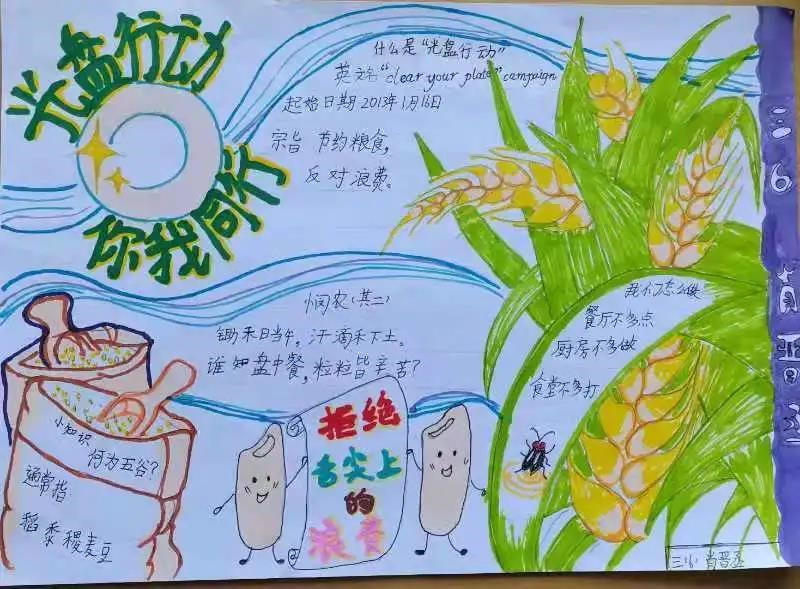 光盘行动
你我同行
什么是“光盘行动”
英文名“clear your plate”campaign
起始日期2013年1月16日
宗旨 节约粮食,
反对浪费。
悯农(其二)
锄禾日当午,汗滴禾下土。
谁知盘中餐,粒粒皆辛苦?
小知识
何为五谷?
通常指
稻黍稷麦豆
拒绝
舌尖上
的
浪费
我们怎么做
餐厅不多点
厨房不多做
食堂不多打
三
6
肖
晋
三(6) 肖晋